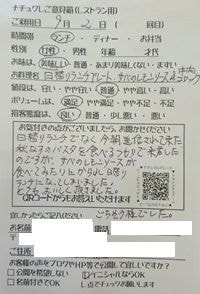 ナチュグレご意見箱(レストラン用)
ご利用日 9月 2日 ( 回目)
時間帯 ランチ・ティー・ディナー・お弁当
性別 女性・男性 年齢 才代
お味は 美味しい・普通・あまり美味しくない・まずい
お料理名 日替りランチプレート、
値段は 安い・やや安い・普通・やや高い・高い
ボリュームは 満足・やや満足・普通・やや不足・不足
接客態度は 良い・普通・少し悪い・悪い
お気付きの点がございましたら、お聞かせください
日替りランチでなく今朝送信して来た
秋なすのパスタを食べるつもりで来店した
のですが、すべのしそソースが
食べてみたりしたから日替り
ランチになってしまいました。
とてもおいしく頂きました。
QRコードからもお答えいただけます
宜しかったらご記入ください ごちそう様でした。
お名前
ご住所
お客様の声をブログやHP等で公開して宜しいですか?
□公開を希望しない □イニシャルならOK
□名前までOK し点でチェックお願いします